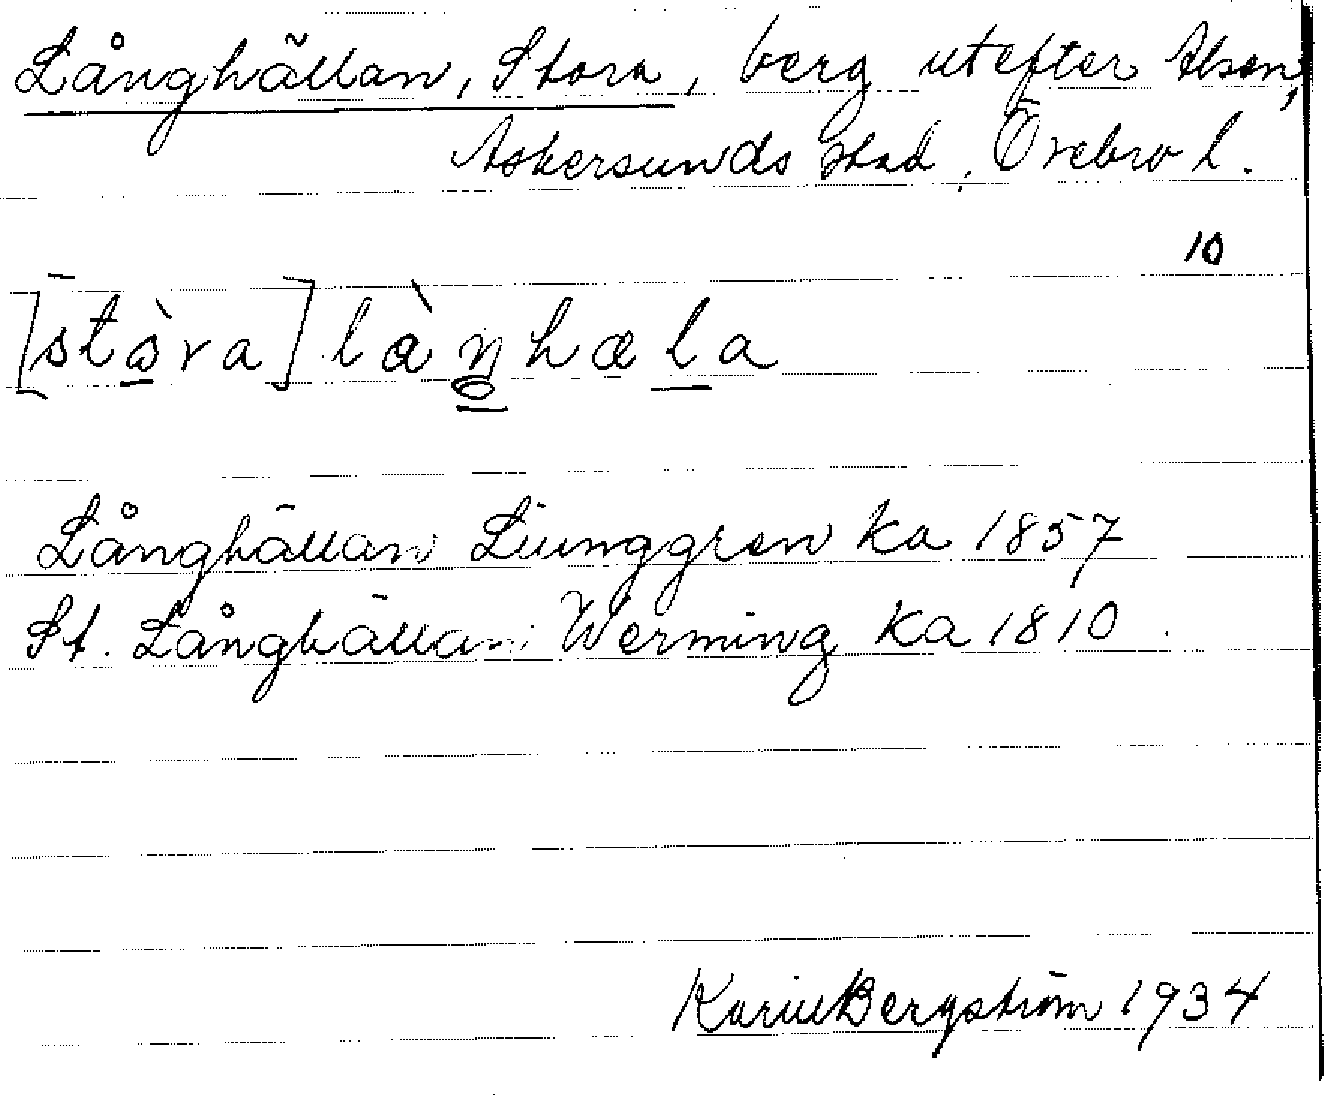 Långhällan, Stora, berg utefter Alsen,
Askersunds stad, Örebro l.
10
[stòra] làŋhæla
Långhällan Liunggren ka 1857
St. Långhällan Werming ka 1810.
Karin Bergström 1934